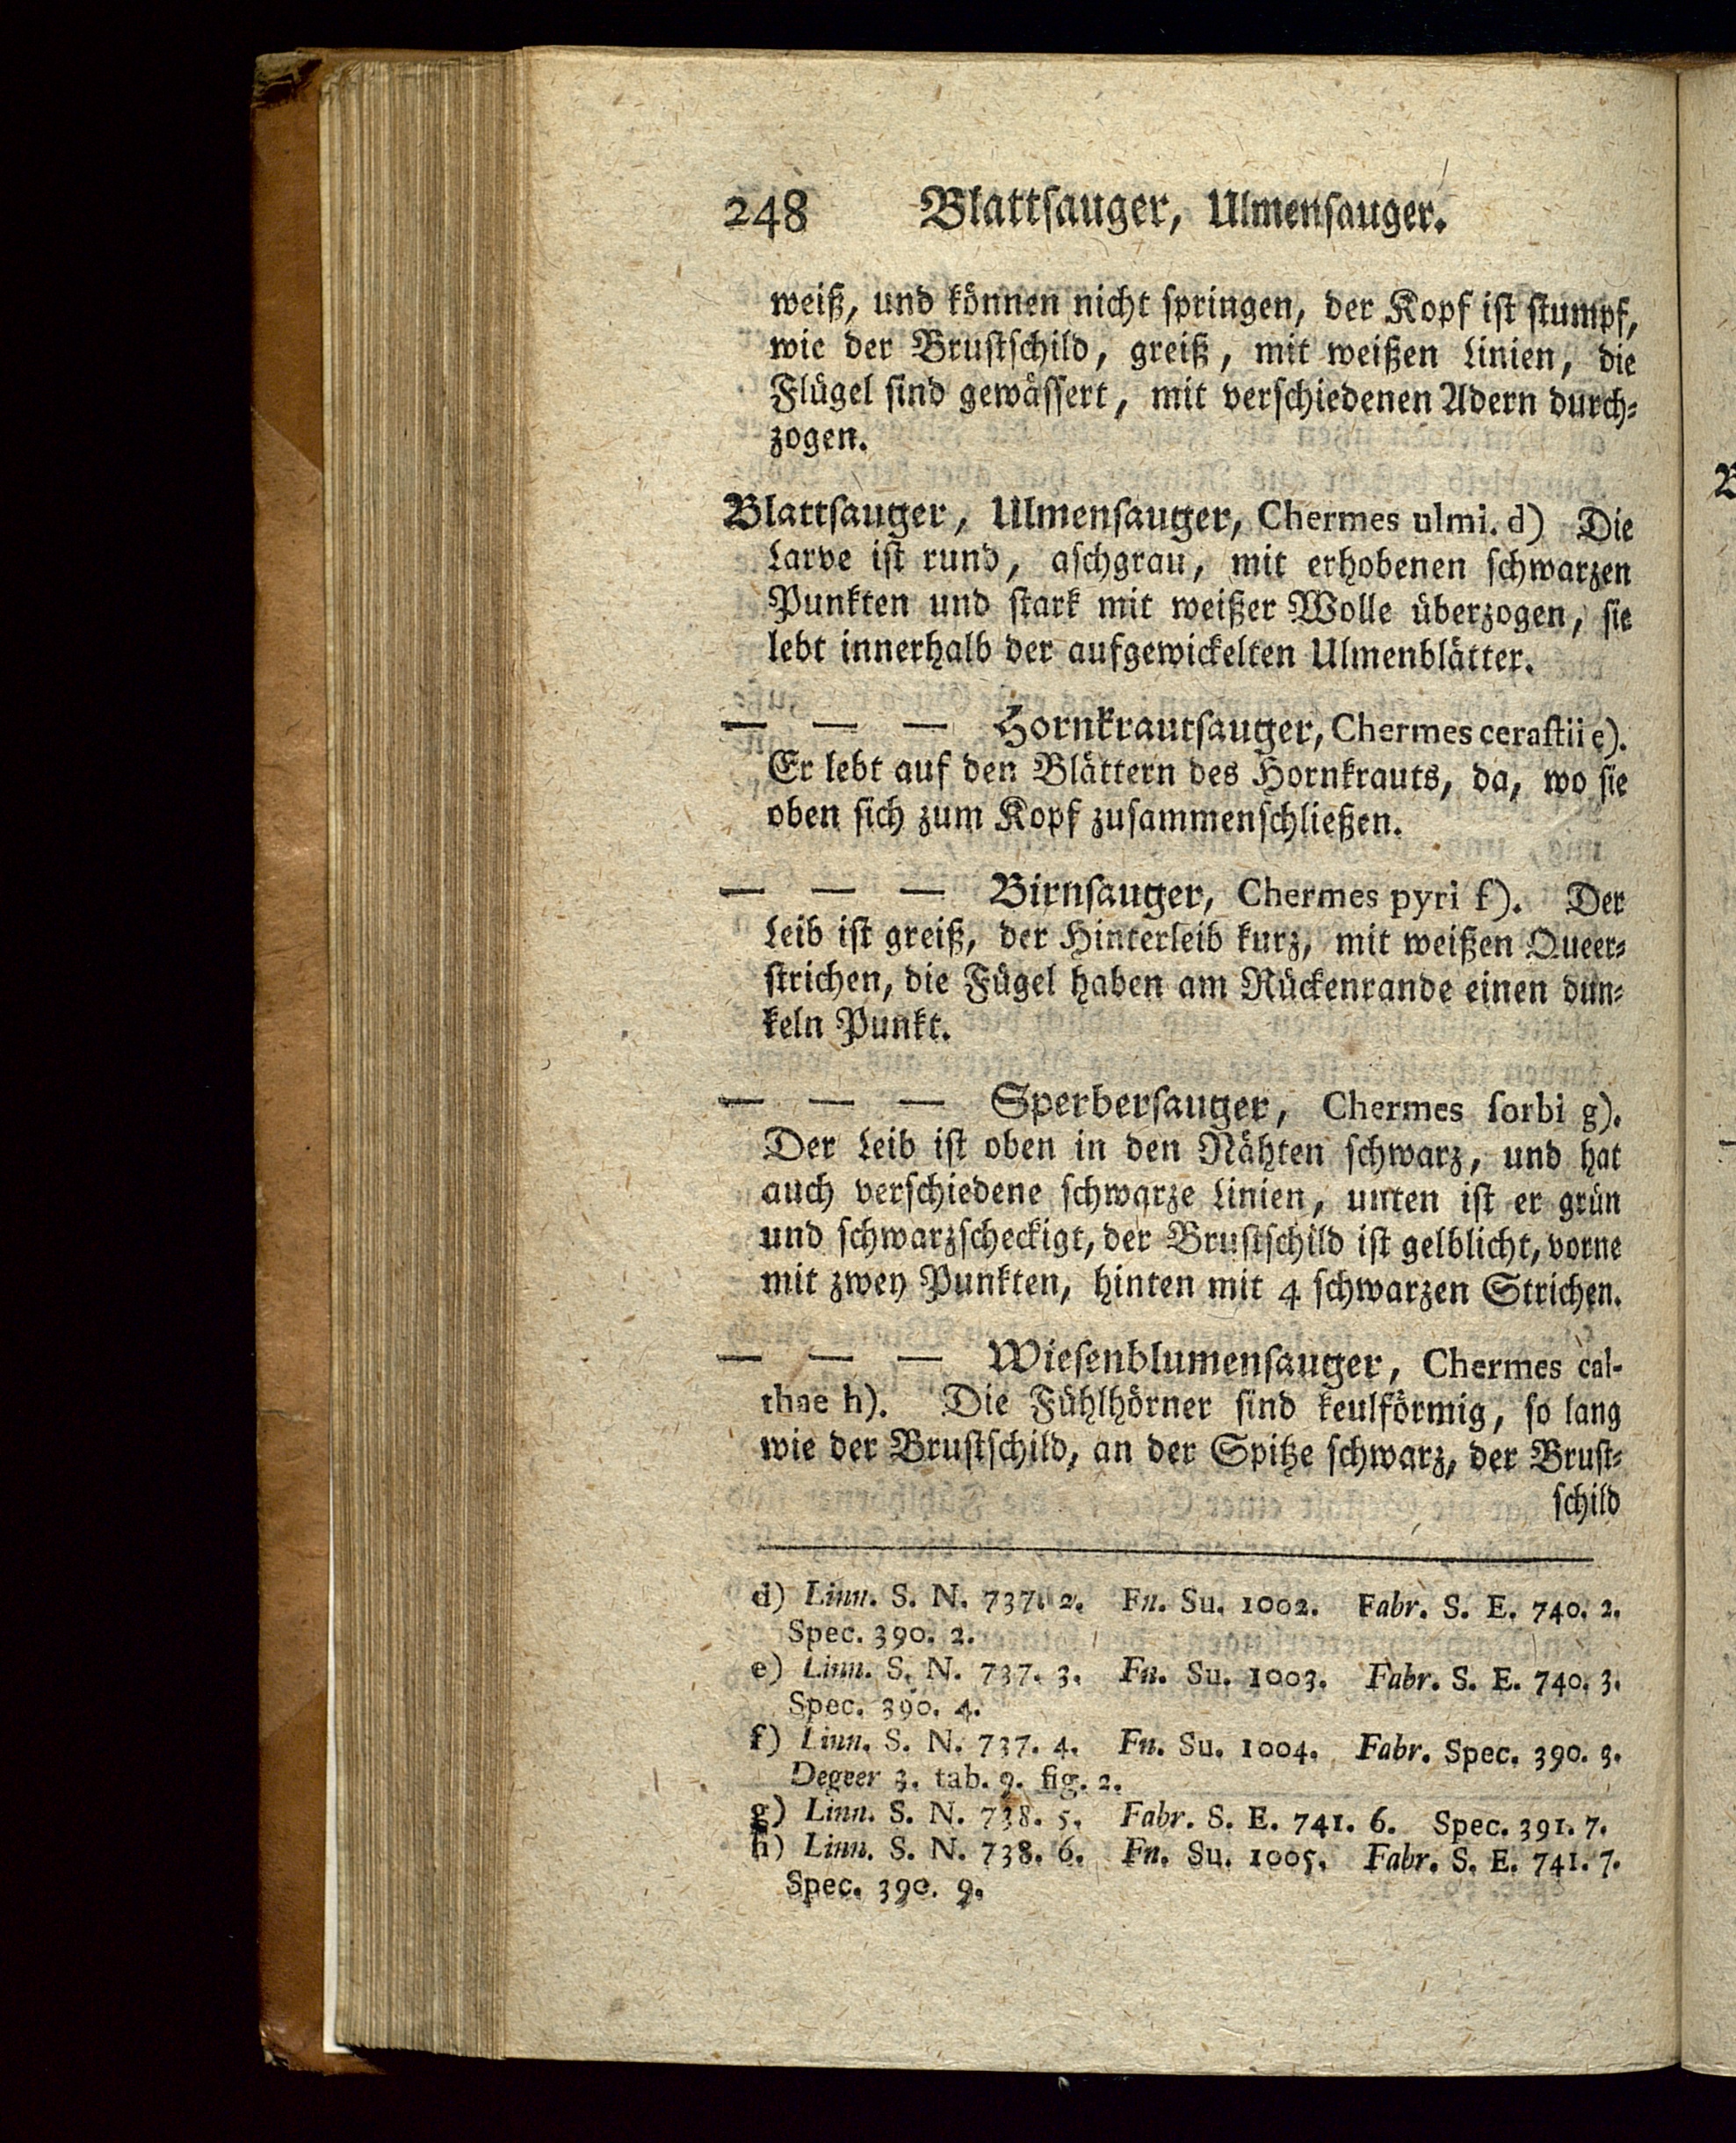 248 Blattsauger, Ulmensauger.
weiß, und können nicht springen, der Kopf ist stumpf,
wie der Brustschild, greiß, mit weißen Linien, die
Flügel sind gewässert, mit verschiedenen Adern durch-
zogen.
Blattsauger, Ulmensauger, Chermes ulmi. d) Die
Larve ist rund, aschgrau, mit erhobenen schwarzen
Punkten und stark mit weißer Wolle überzogen, sie
lebt innerhalb der aufgewickelten Ulmenblätter.
— — — Hornkrautsauger, Chermes cerastii e).
Er lebt auf den Blättern des Hornkrauts, da, wo sie
oben sich zum Kopf zusammenschließen.
— — — Birnsauger, Chermes pyri f). Der
Leib ist greiß, der Hinterleib kurz, mit weißen Queer-
strichen, die Fügel haben am Rückenrande einen dun-
keln Punkt.
— — — Sperbersauger, Chermes sorbi g).
Der Leib ist oben in den Nähten schwarz, und hat
auch verschiedene schwarze Linien, unten ist er grün
und schwarzscheckigt, der Brustschild ist gelblicht, vorne
mit zwey Punkten, hinten mit 4 schwarzen Strichen.
— — — Wiesenblumensauger, Chermes cal-
thae h). Die Fühlhörner sind keulförmig, so lang
wie der Brustschild, an der Spitze schwarz, der Brust-
schild
d) Linn. S. N. 737. 2. Fn. Su. 1002. Fabr. S. E. 740. 2.
Spec. 390. 2.
e) Linn. S. N. 737. 3. Fn. Su. 1003. Fabr. S. E. 740. 3.
Spec. 390. 4.
f) Linn. S. N. 737. 4. Fn. Su. 1004. Fabr. Spec. 390. 3.
Degeer 3. tab. 9. fig. 2.
g) Linn. S. N. 738. 5. Fabr. S. E. 741. 6. Spec. 391. 7.
h) Linn. S. N. 738. 6. Fn. Su. 1005. Fabr. S. E. 741. 7.
Spec. 390. 9.